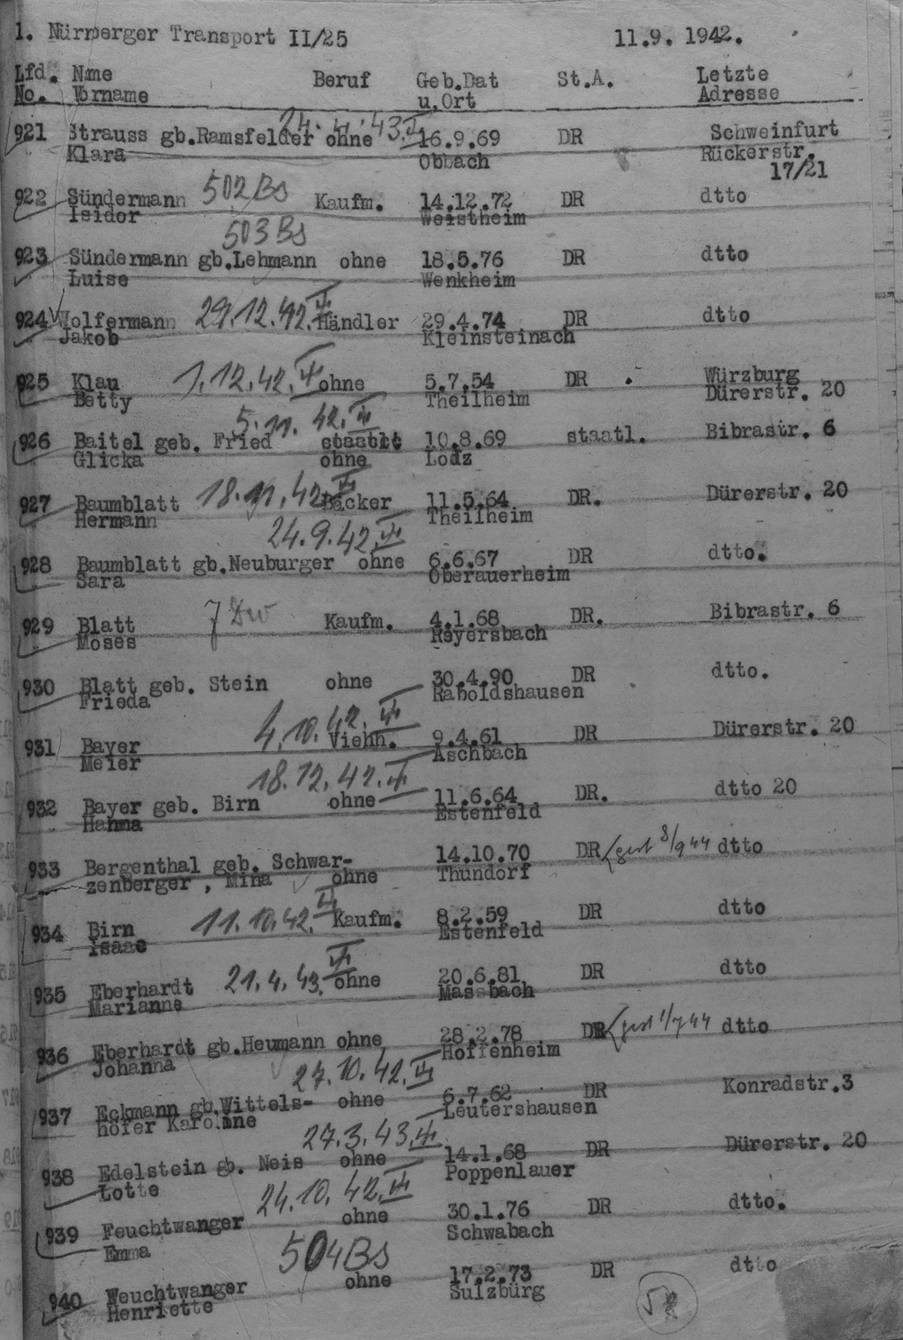 1. Nürnberger Transport II/25 11.9. 1942.
Lfd. Name Beruf Geb.Dat St.A. Letzte
No. Vorname u.Ort Adresse
24. 4. 43.
921 Strauss gb.Ramsfelder ohne 16.9.69 DR Schweinfurt
Klara Obbach Rückerstr.
17/21
922 Sündermann 502 Bs Kaufm. 14.12.72 DR dtto
Isidor Weistheim
503 Bs
923 Sündermann gb.Lehmann ohne 18.5.76 DR dtto
Luise Wenkheim
924 Wolfermann 29.12.42. Händler 29.4.74 DR dtto
Jakob Kleinsteinach
925 Klau 1.12.42. ohne 5.7.54 DR Würzburg
Betty Theilheim Dürerstr. 20
5.11.42.
926 Baitel geb. Fried 10.8.69 staatl. Bibrastr. 6
Glicka ohne Lodz
927 Baumblatt 18.11.42 Bäcker 11.5.64 DR. Dürerstr. 20
Hermann Theilheim
24.9.42.
928 Baumblatt gb.Neuburger ohne 6.6.67 DR dtto.
Sara Oberauerheim
929 Blatt Kaufm. 4.1.68 DR. Bibrastr. 6
Moses Reyersbach
930 Blatt geb. Stein ohne 30.4.90 DR dtto.
Frieda Raboldshausen
4.10.42.
931 Bayer Viehh. 9.4.61 DR Dürerstr. 20
Meier Aschbach
18.12.42.
932 Bayer geb. Birn ohne 11.6.64 DR. dtto 20
Hanna Estenfeld
933 Bergenthal geb. Schwar- 14.10.70 DR gest 8/9 44 dtto
zenberger , Mina ohne Thundorf
934 Birn 11.10.42. Kaufm. 8.2.59 DR dtto
Isaac Estenfeld
935 Eberhardt 21.4.43. ohne 20.6.81 DR dtto
Marianne Massbach
936 Eberhardt gb.Heumann ohne 28.2.78 DR gest 1/7 44 dtto
Johanna Hoffenheim
27.10.42.
937 Eckmann gb.Wittels- ohne 6.7.62 DR Konradstr.3
höfer Karoline Leutershausen
27.3.43.
938 Edelstein gb. Neis ohne 14.1.68 DR Dürerstr. 20
Lotte Poppenlauer
24.10.42.
939 Feuchtwanger ohne 30.1.76 DR dtto.
Emma Schwabach
504 Bs
940 Weuchtwanger ohne 17.2.73 DR dtto
Henriette Sulzbürg